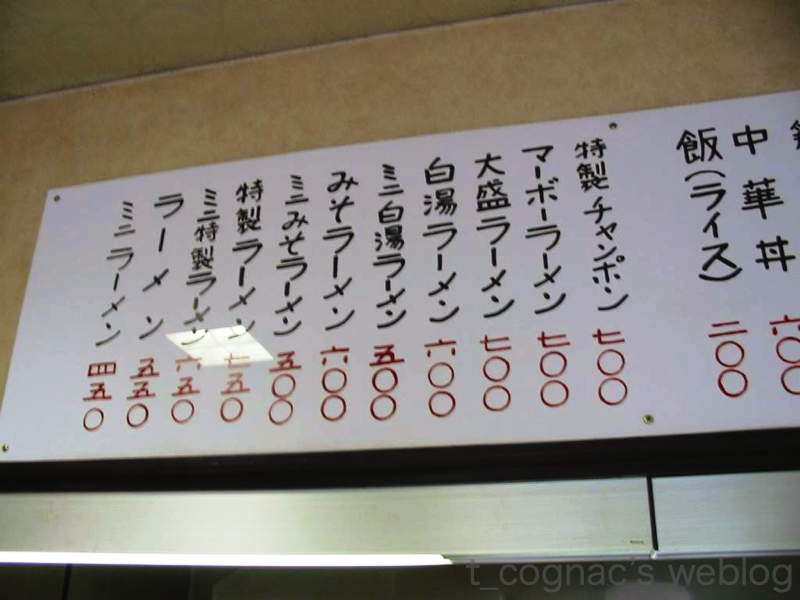 中華丼 六〇〇
飯(ライス) 二〇〇
特製チャンポン 七〇〇
マーボーラーメン 七〇〇
大盛ラーメン 七〇〇
白湯ラーメン 六〇〇
ミニ白湯ラーメン 五〇〇
みそラーメン 六〇〇
ミニみそラーメン 五〇〇
特製ラーメン 七五〇
ミニ特製ラーメン 六五〇
ラーメン 五五〇
ミニラーメン 四五〇
t_cognac's weblog